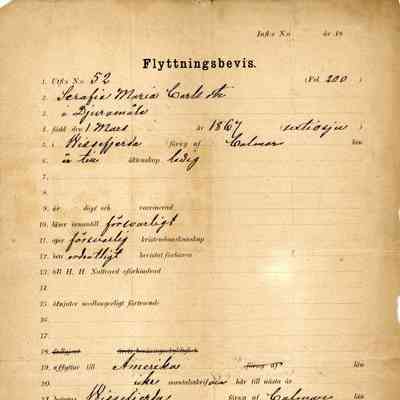 Inft:s N:o år 18
Flyttningsbevis.
1. Utft:s N:o 52 (Fol. 200 )
2. Serafia Maria Carlsdr
3. o Djuramåla
4. född den 1 Mars år 1867 (sextiosju )
5. i Wissefjerda förvg af Calmar län
6. är till äktenskap ledig
7.
8.
9. är döpt och vaccinerad
10. läser innantill försvarligt
11. eger försvarlig kristendomskunskap
12. har ordentligt bevistat förhören
13. är H. H. Nattvard oförhindrad
14.
15. åtnjuter medborgerligt förtroende
16.
17.
18.
19. afflyttar till Amerika förvg af län
20. icke mantalsskrifven här till nästa år
Wissefjerda förvg af Calmar län